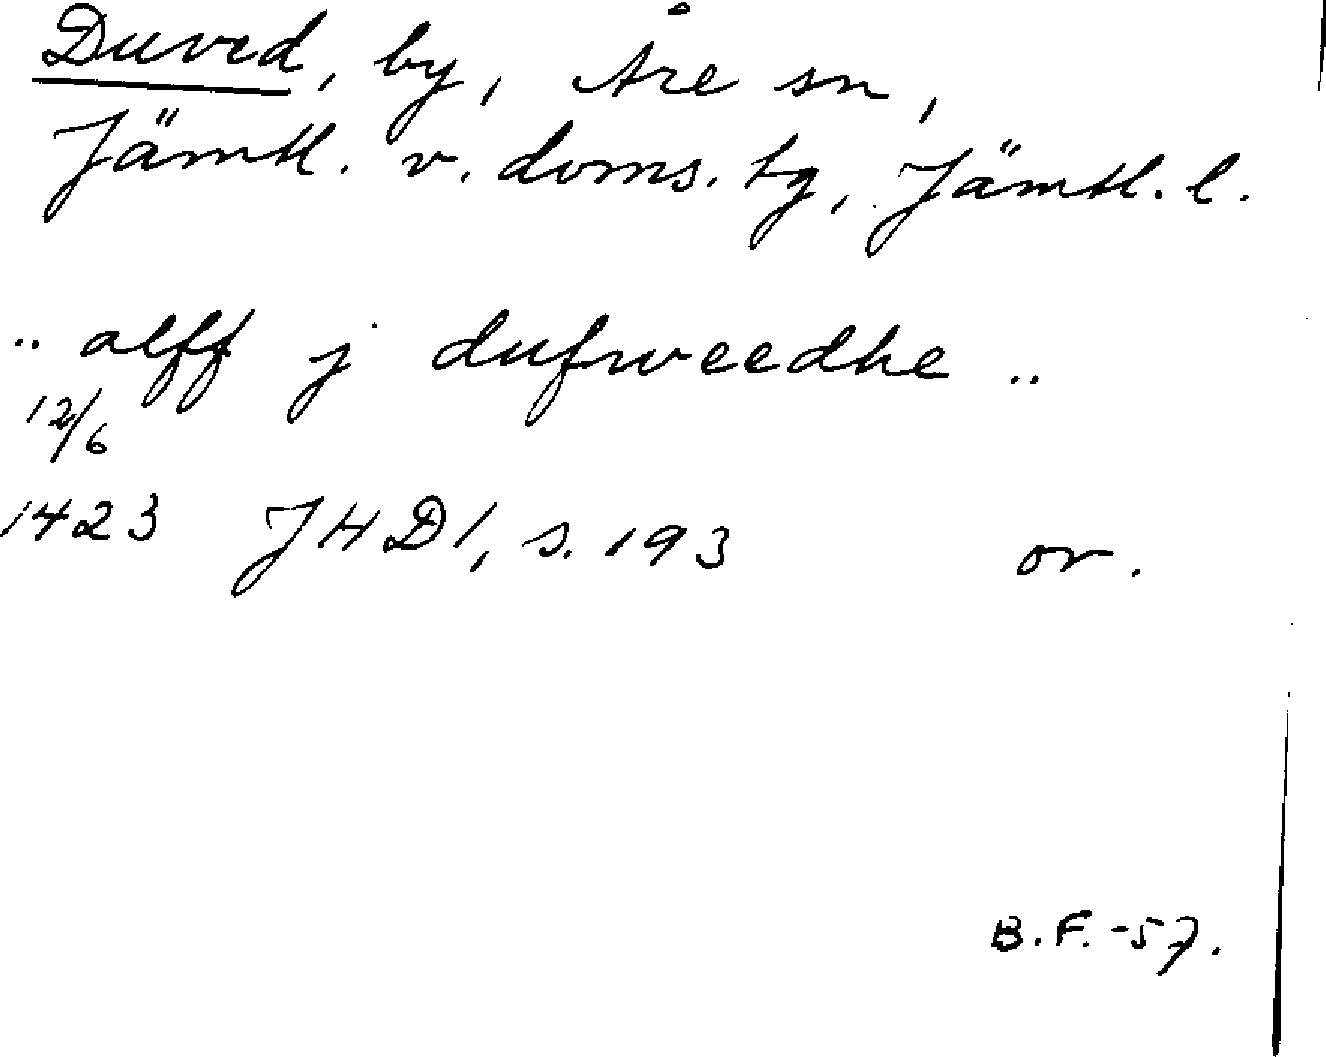 Duved, by, Åre sn,
Jämtl. v. doms. tg, Jämtl. l.
.. alff j dufweedhe ..
12/6
1423 JHD1, s. 193 or.
B.F. -57.